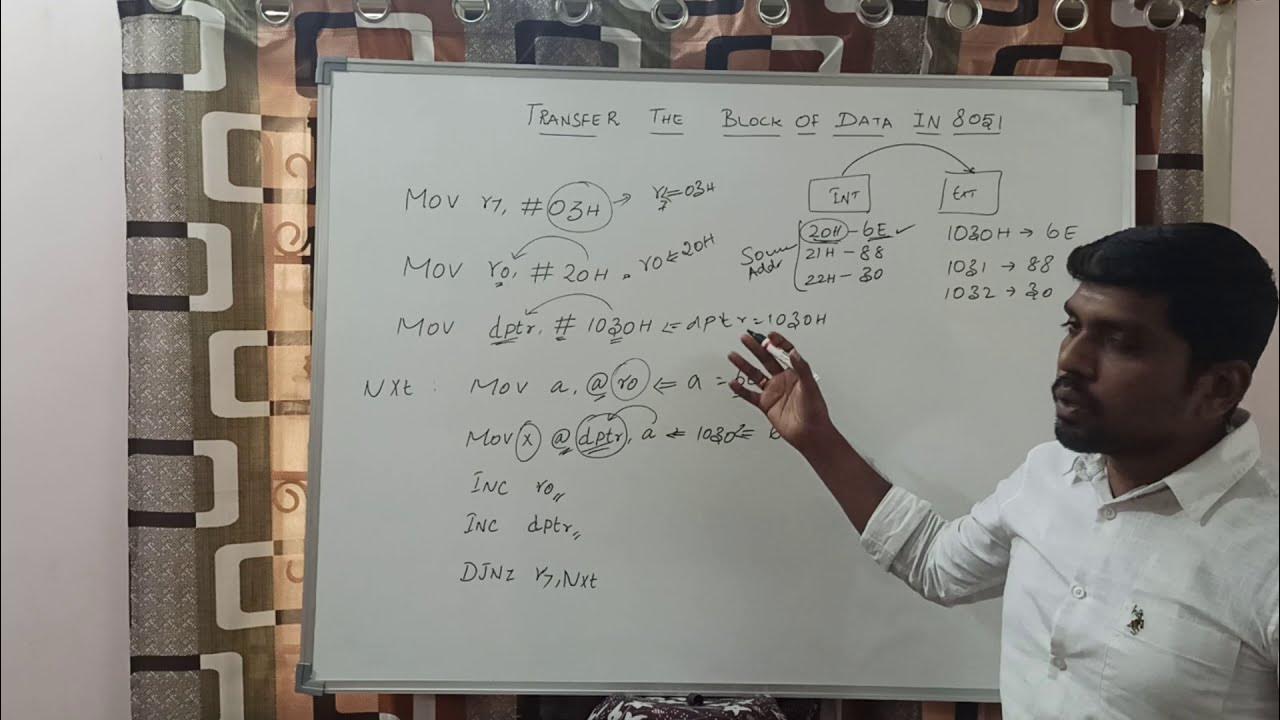 TRANSFER THE BLOCK OF DATA IN 8051
MOV r7, #03H → r7=03H
MOV r0, #20H r0 ⇐ 20H
MOV dptr, #1030H ⇐ dptr=1030H
NXt : MOV a, @r0 ⇐ a =
MOVX @dptr, a ⇐ 1030 =
INC r0
INC dptr
DJNZ r7, NXt
INT EXT
Addr
20H - 6E ✓
21H - 88
22H - 30
1030H → 6E
1031 → 88
1032 → 30